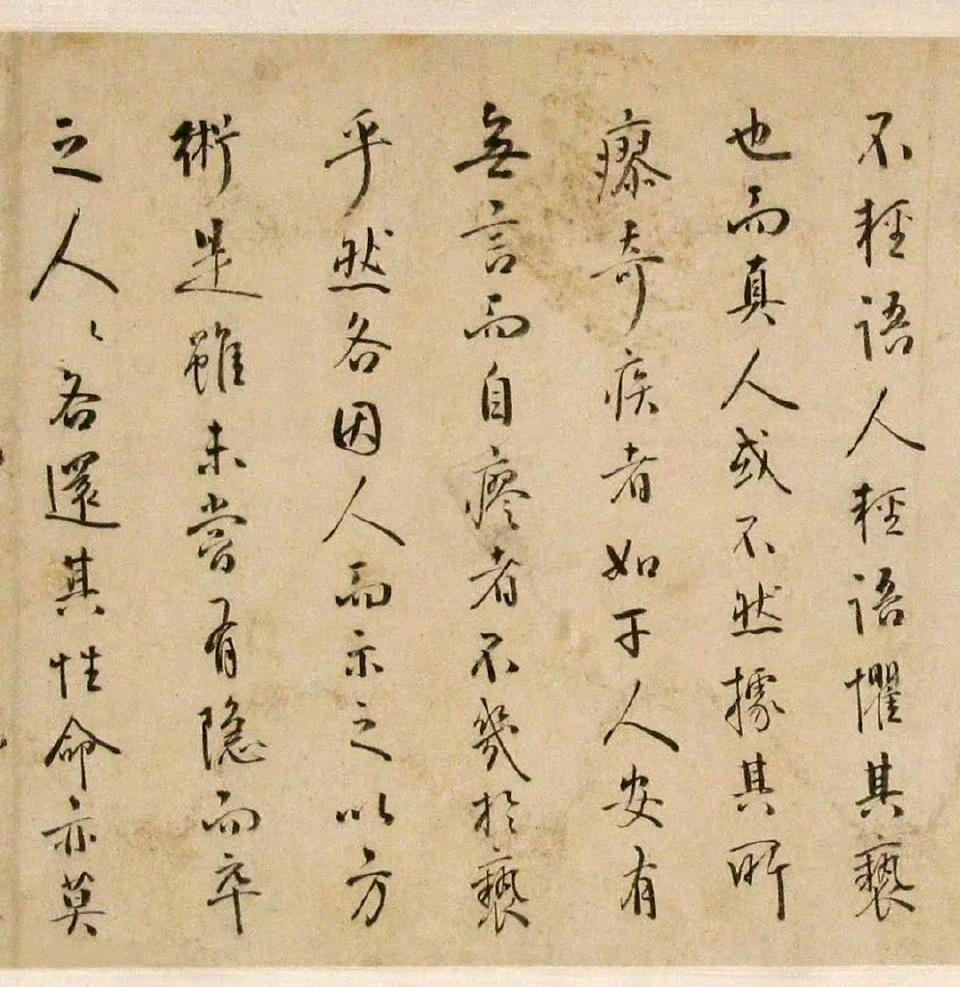 不輕語人輕語懼其褻
也而真人或不然據其所
瘳奇疾者如干人安有
無言而自瘳者不幾於褻
乎然各因人而示之以方
術是雖未嘗有隱而卒
之人〻各還其性命亦莫